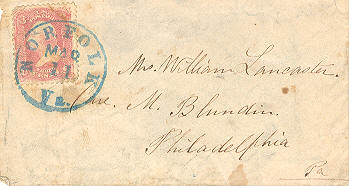 NORFOLK
MAR
11
Va.
Mrs. William Lancaster.
Care M. Blundin
Philadelphia
Pa